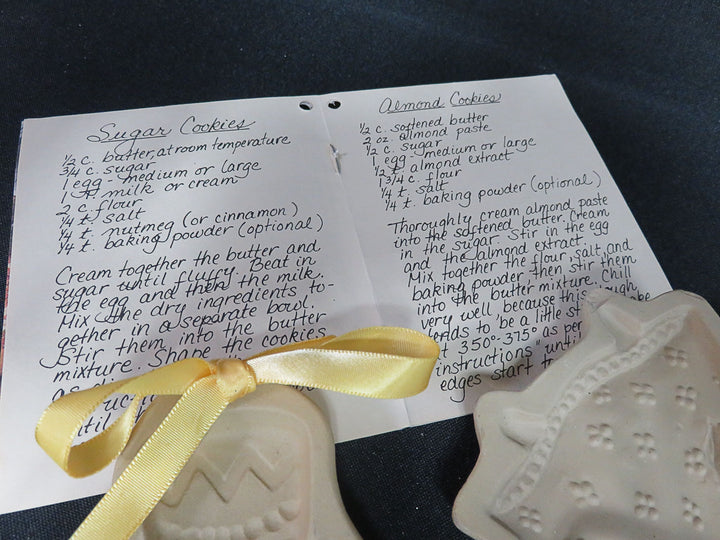 Sugar Cookies
½ c. butter, at room temperature
¾ c. sugar
1 egg - medium or large
1 T. milk or cream
2 c. flour
¼ t. salt
¼ t. nutmeg (or cinnamon)
¼ t. baking powder (optional)
Cream together the butter and
sugar until fluffy. Beat in
the egg and then the milk.
Mix the dry ingredients to-
gether in a separate bowl.
Stir them into the butter
mixture. Shape the cookies
as
Almond Cookies
½ c. softened butter
2 oz. almond paste
½ c. sugar
1 egg - medium or large
½ t. almond extract
1¾ c. flour
¼ t. salt
¼ t. baking powder (optional)
Thoroughly cream almond paste
into the softened butter. Cream
in the sugar. Stir in the egg
and the almond extract.
Mix together the flour, salt, and
baking powder, then stir them
into the butter mixture. Chill
very well because this
to be a little
350°-375° as per
instructions" until
edges start